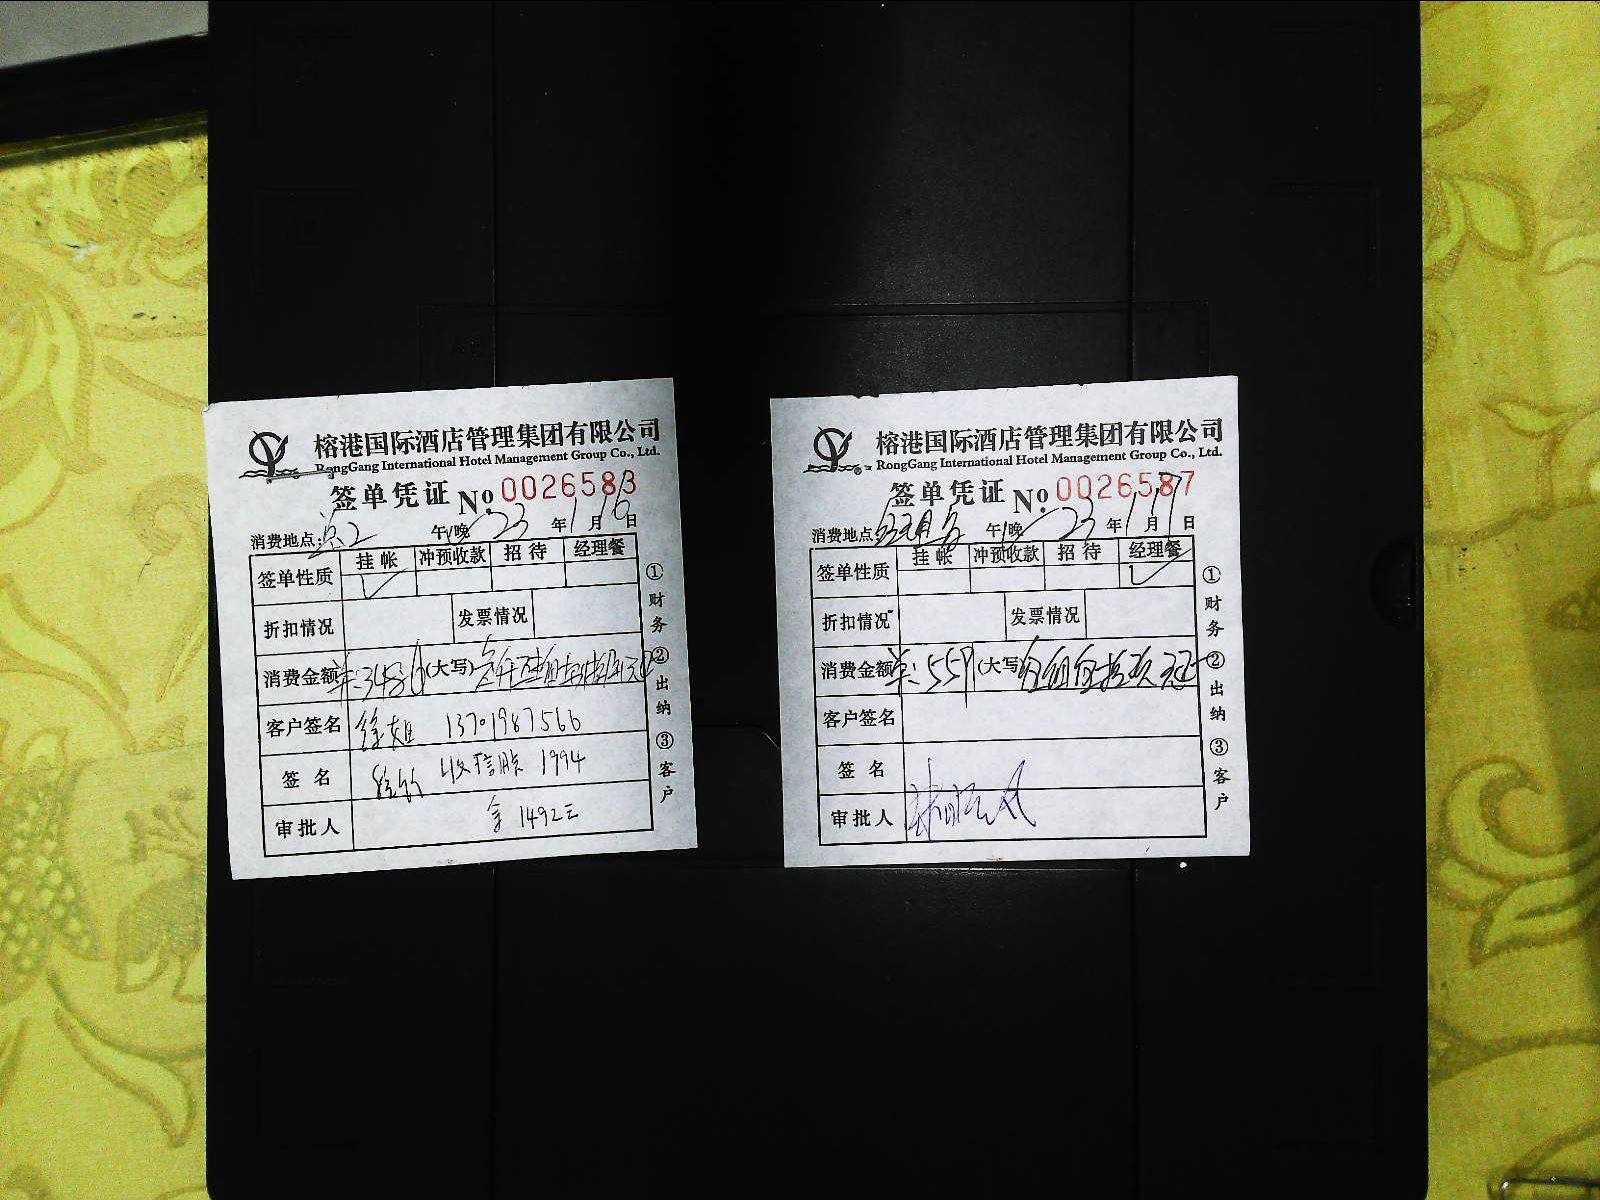 榕港国际酒店管理集团有限公司
RongGang International Hotel Management Group Co., Ltd.
签单凭证 No. 0026583
消费地点: 午/晚 23 年 1 月 16 日
签单性质 挂帐 冲预收款 招待 经理餐
折扣情况 发票情况
消费金额 (大写)
客户签名 徐姐 13701987566
签名 1994
审批人 1492
①财务 ②出纳 ③客户
榕港国际酒店管理集团有限公司
RongGang International Hotel Management Group Co., Ltd.
签单凭证 No. 0026587
消费地点 午/晚 23 年 1 月 17 日
签单性质 挂帐 冲预收款 招待 经理餐
折扣情况 发票情况
消费金额 559 (大写)
客户签名
签名
审批人
①财务 ②出纳 ③客户